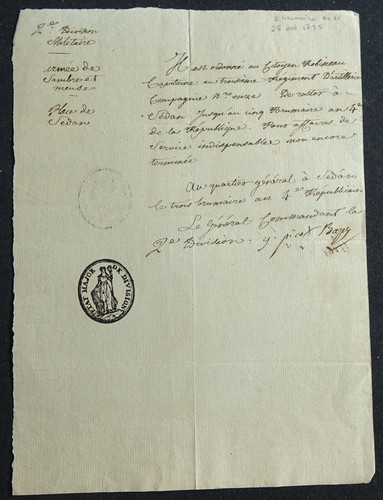 2e Division
Militaire
armée de
Sambre et
meuse
Place de
Sédan
25 oct 1795
Il est ordonné au Citoyen Robineau
Capitaine au troisieme Regiment D'artillerie
Compagnie Nro onze De rester à
Sédan Jusqu'au cinq Brumaire an 4e
de la République. Pour affaires de
Service indispensable non encore
terminée
Au quartier général à Sédan
le trois brumaire au 4e Républicain
Le Général Commandant la
2e Division:
ETAT MAJOR DE DIVISION